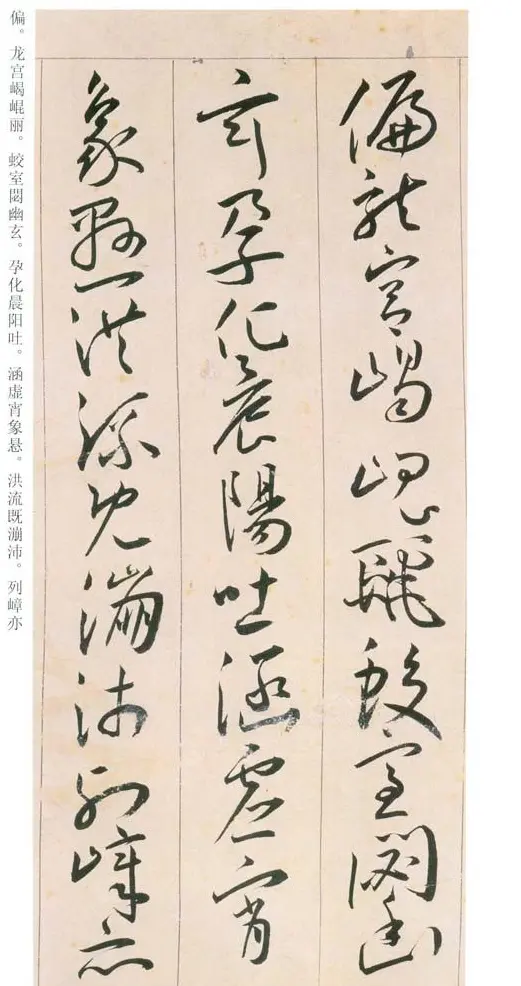 偏龍宮嵑崐麗蛟室閟幽
玄孕化晨陽吐涵虛宵
象懸洪流既漰沛列嶂亦
偏。龙宫嵑崐丽。蛟室閟幽玄。孕化晨阳吐。涵虚宵象悬。洪流既漰沛。列嶂亦